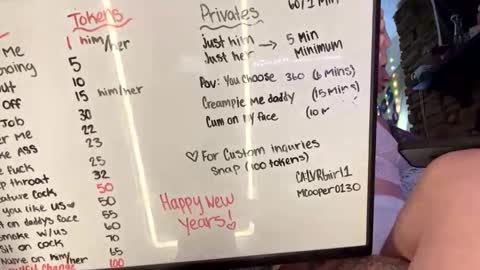 Tokens
Me 1 him/her
5
10
Off 15 him/her
Job 30
Me 22
ASS 23
25
throat 32
Cock 50
you like us♡ 50
on daddys face 55
smoke w/us 60
Sit on cock 70
Name on him/her 65
Change 100
Privates 60/1 Min
Just him
Just her → 5 Min Minimum
Pov: You choose 360 (6 Mins)
Creampie Me daddy (15 Mins)
Cum on my face (10 M
♡ For Custom inquries
Snap (100 tokens)
Mcooper0130
Happy New
Years!♡